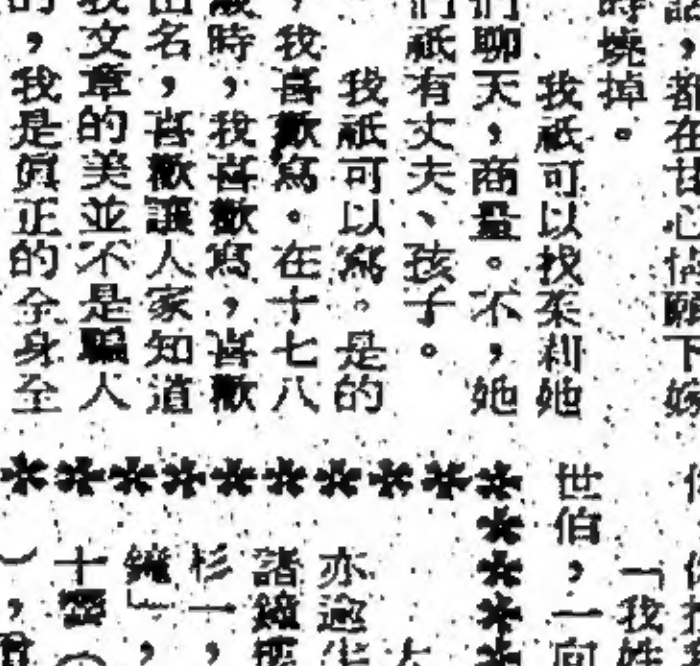 記，都在甘心情願下嫁
時燒掉。
我祇可以找茱莉她
們聊天，商量。不，她
們祇有丈夫、孩子。
我祇可以寫。是的
，我喜歡寫。在十七八
歲時，我喜歡寫，喜歡
出名，喜歡讓人家知道
我文章的美並不是騙人
的，我是眞正的全身全
「我姓
世伯，一向
亦邀生
諸鐘
杉一，
鐘﹂，
十靈（
），